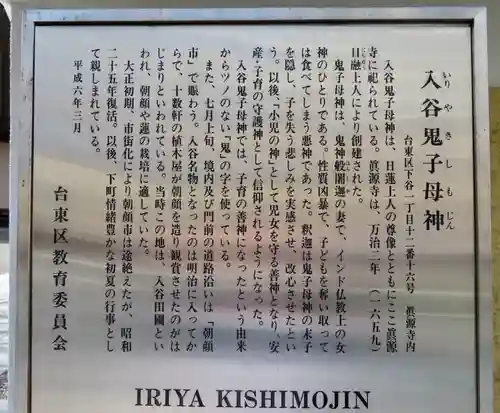 入谷鬼子母神
いりやきしもじん
台東区下谷一丁目十二番十六号　眞源寺内
入谷鬼子母神は、日蓮上人の尊像とともにここ眞源
寺に祀られている。眞源寺は、万治二年（一六五九）
日融上人により創建された。
鬼子母神は、鬼神般闍迦の妻で、インド仏教上の女
神のひとりである。性質凶暴で、子どもを奪い取って
は食べてしまう悪神であった。釈迦は鬼子母神の末子
を隠し、子を失う悲しみを実感させ、改心させたとい
う。以後「小児の神」として児女を守る善神となり、安
産・子育の守護神として信仰されるようになった。
入谷鬼子母神では、子育の善神になったという由来
からツノのない「鬼」の字を使っている。
また、七月上旬、境内及び門前の道路沿いは「朝顔
市」で賑わう。入谷名物となったのは明治に入ってか
らで、十数軒の植木屋が朝顔を造り観賞させたのがは
じまりといわれている。当時この地は、入谷田圃とい
われ、朝顔や蓮の栽培に適していた。
大正初期、市街化により朝顔市は途絶えたが、昭和
二十五年復活。以後、下町情緒豊かな初夏の行事とし
て親しまれている。
平成六年三月
台東区教育委員会
IRIYA KISHIMOJIN